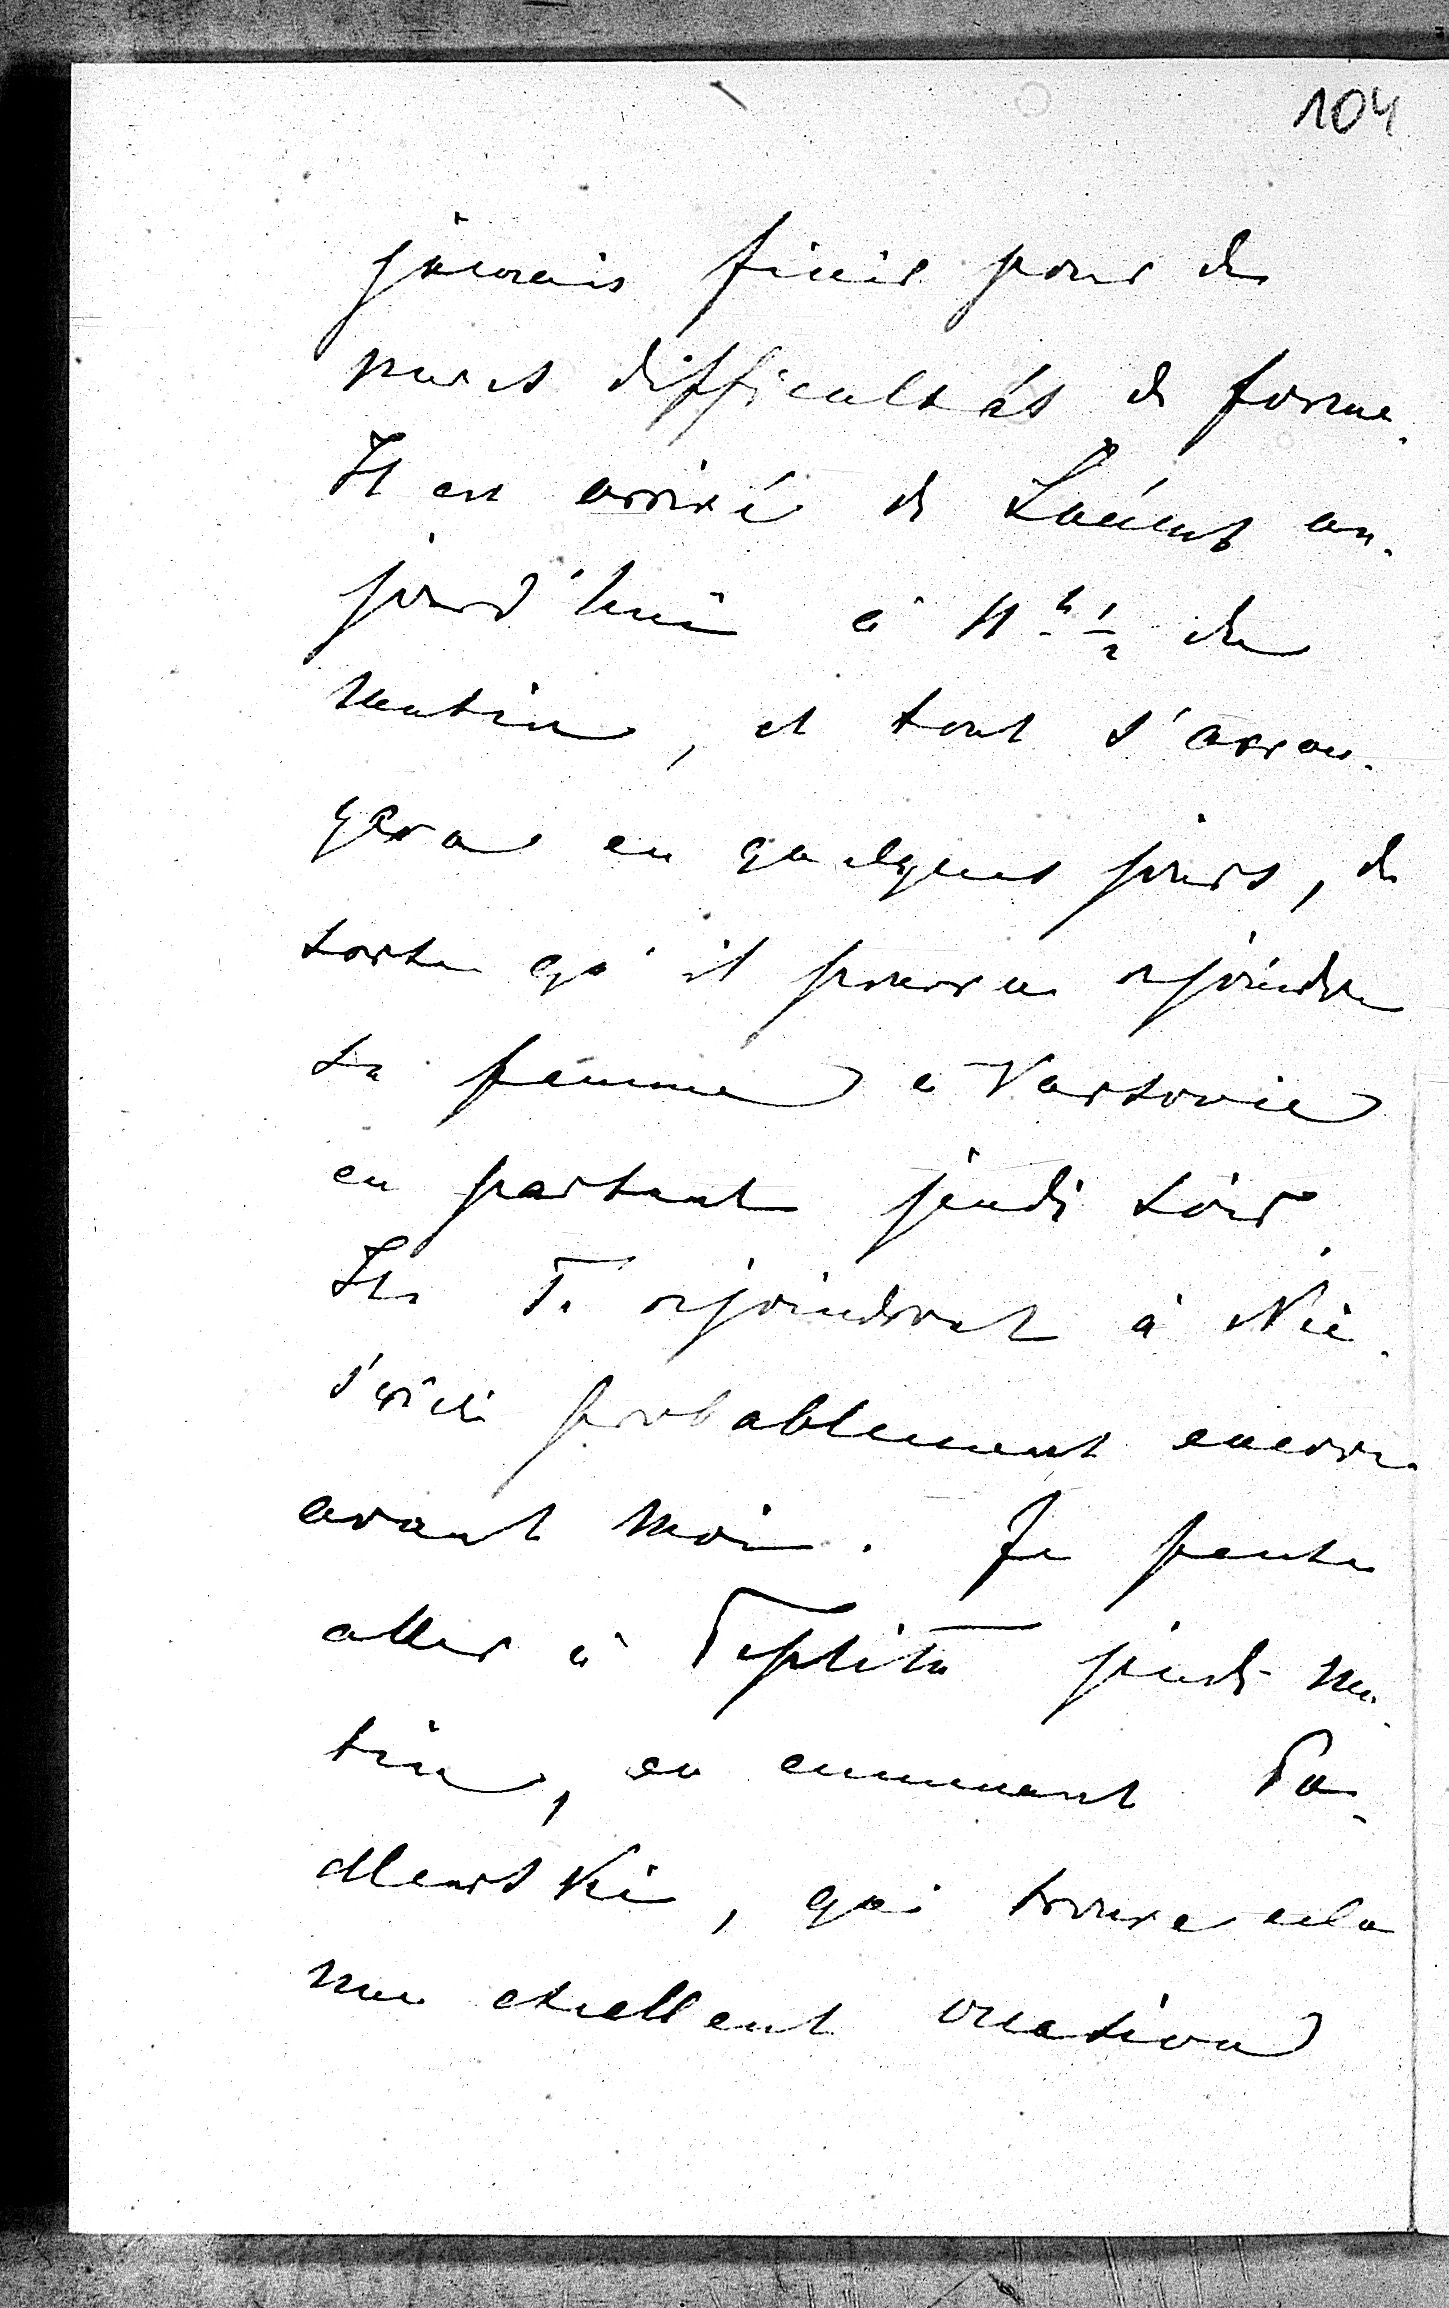 104
jamais finir pour de
pures difficultés de forme.
Il est arrivé de Łańcut au-
jourd'hui à 11 h 1/2 du
matin, et tout s'arran-
gera en quelques jours, de
sorte qu'il pourra rejoindre
sa femme à Varsovie
en partant jeudi soir.
Ils Te rejoindront à Nie-
świcz probablement encore
avant moi. Je pense
aller à Teplitz jeudi ma-
tin, en emmenant Pa-
dlewski, qui trouve cela
une excellent occasion